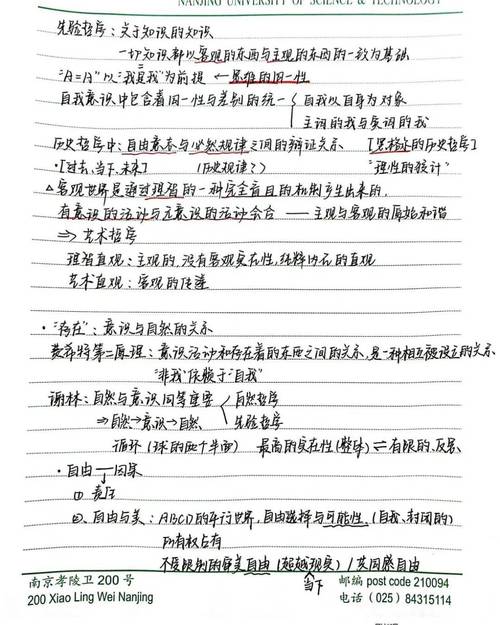 NANJING UNIVERSITY OF SCIENCE & TECHNOLOGY
先验哲学：关于知识的知识
一切知识都以客观的东西与主观的东西的一致为基础
"A=A"以"我是我"为前提 ← 思维的同一性
自我意识中包含着同一性与差别的统一 { 自我以自身为对象
主词的我与宾词的我
历史哲学中：自由意志与必然规律之间的辩证关系 [黑格尔的历史哲学]
·[过去、当下、未来] (历史规律？) "理性的狡计"
△客观世界是通过理智的一种完全盲目的机制产生出来的.
有意识的活动与无意识的活动会合 —— 主观与客观的原始和谐
⇒ 艺术哲学
理智直观：主观的，没有客观实在性，纯粹内在的直观
艺术直观：客观的传达
·"存在"：意识与自然的关系
费希特第二原理：意识活动和存在着的东西之间的关系，是一种相互被设立的关系
"非我"依赖于"自我"
谢林：自然与意识同等重要 { 自然哲学
⇒自然→意识→自然 先验哲学
循环 (球的两个半面) 最高的实在性(整体) ⇌ 有限的、
·自由——因果
①
②、自由与美：ABCD的平行世界，自由选择与可能性.(自我、封闭的)
所有权占有
不受限制的审美自由 (超越现实) /
当下
南京孝陵卫 200 号 邮编 post code 210094
200 Xiao Ling Wei Nanjing 电话 (025) 84315114